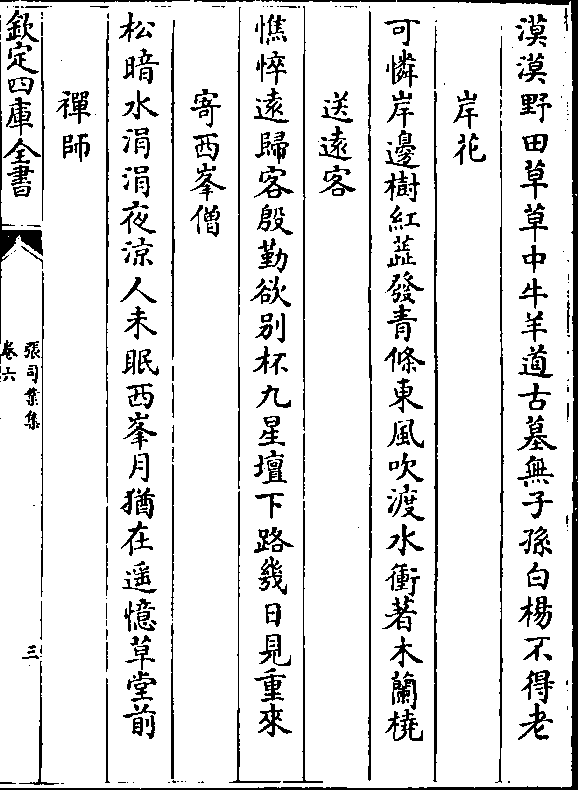 漠漠野田草草中牛羊道古墓無子孫白楊不得老
岸花
可憐岸邊樹紅蘂發青條東風吹渡水衝著木蘭橈
送遠客
憔悴遠歸客殷勤欲别杯九星壇下路幾日見重來
寄西峯僧
松暗水涓涓夜涼人未眠西峯月猶在遥憶草堂前
禪師
欽定四庫全書
張司業集
卷六
三